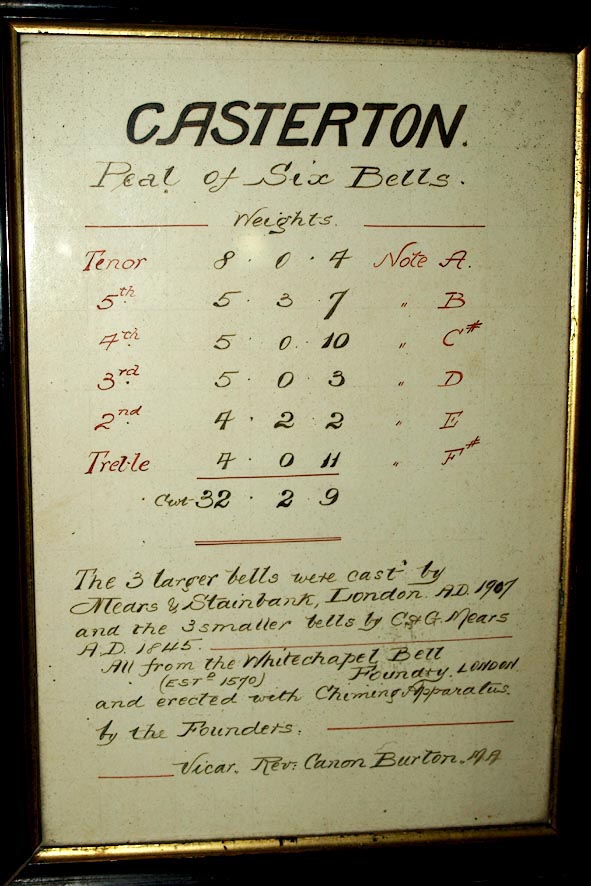 CASTERTON.
Peal of Six Bells.
Weights.
Tenor 8 · 0 · 4 Note A.
5th 5 · 3 7 " B
4th 5 · 0 · 10 " C#
3rd 5 · 0 3 " D
2nd 4 · 2 2 " E
Treble 4 · 0 11 " F#
Cwt 32 · 2 9
The 3 larger bells were cast by
Mears & Stainbank, London. A.D. 1907
and the 3 smaller bells by C & G. Mears
A.D. 1845.
All from the Whitechapel Bell
(ESTD 1570) Foundry. LONDON
and erected with Chiming Apparatus.
by the Founders.
Vicar. Rev: Canon Burton. MA